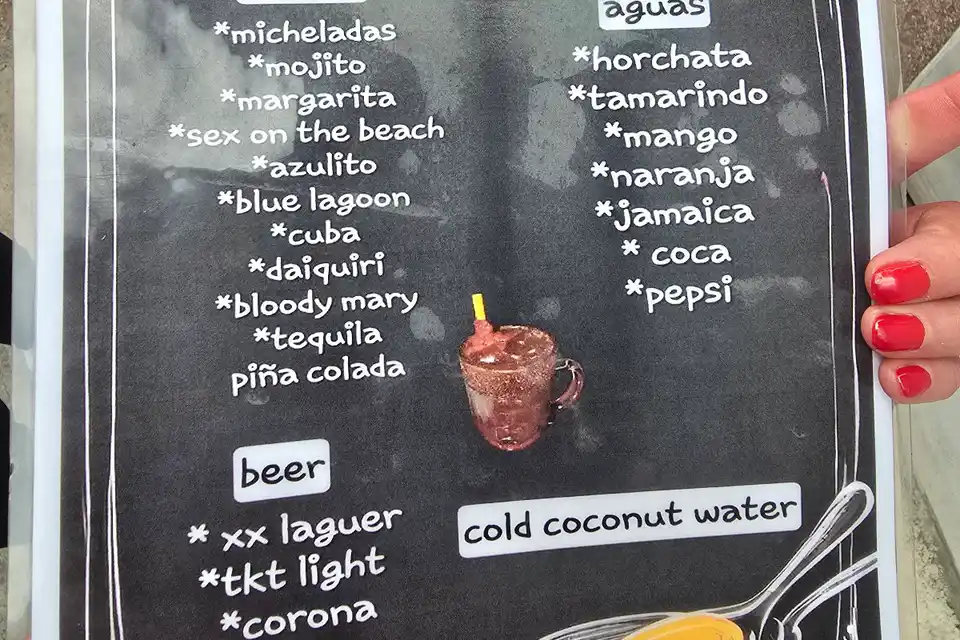 *micheladas
*mojito
*margarita
*sex on the beach
*azulito
*blue lagoon
*cuba
*daiquiri
*bloody mary
*tequila
piña colada
beer
* xx laguer
*tkt light
*corona
aguas
*horchata
*tamarindo
*mango
*naranja
*jamaica
* coca
*pepsi
cold coconut water